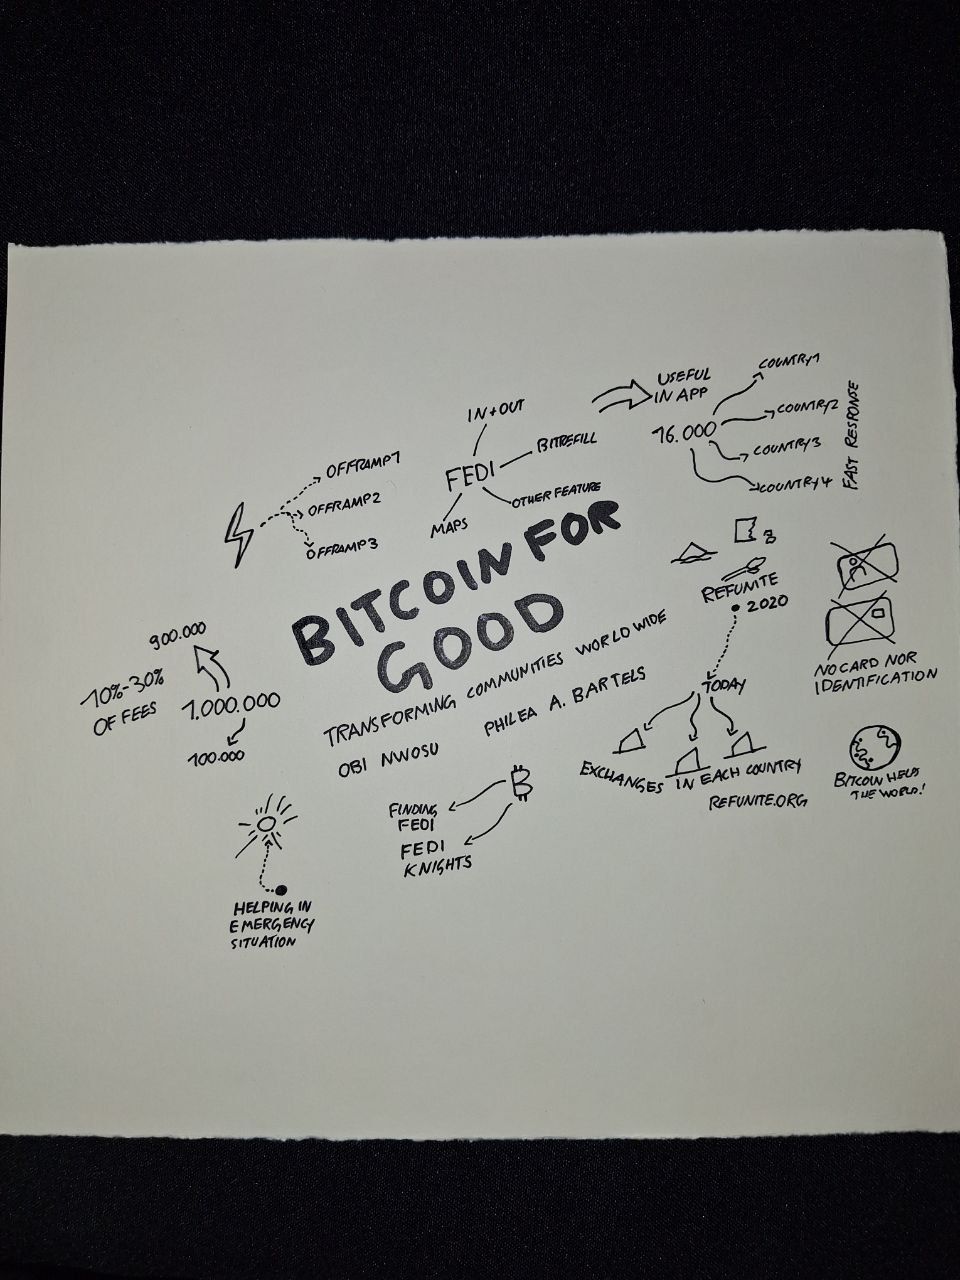 BITCOIN FOR
GOOD
TRANSFORMING COMMUNITIES WORLDWIDE
OBI NWOSU
PHILEA A. BARTELS
OFFRAMP1
OFFRAMP2
OFFRAMP3
IN+OUT
FEDI
BITREFILL
MAPS
OTHER FEATURE
USEFUL
IN APP
16.000
COUNTRY1
COUNTRY2
COUNTRY3
COUNTRY4
FAST RESPONSE
REFUNITE
2020
TODAY
EXCHANGES IN EACH COUNTRY
REFUNITE.ORG
NO CARD NOR
IDENTIFICATION
BITCOIN HELPS
THE WORLD!
900.000
10%-30%
OF FEES
1.000.000
100.000
FINDING
FEDI
FEDI
KNIGHTS
HELPING IN
EMERGENCY
SITUATION